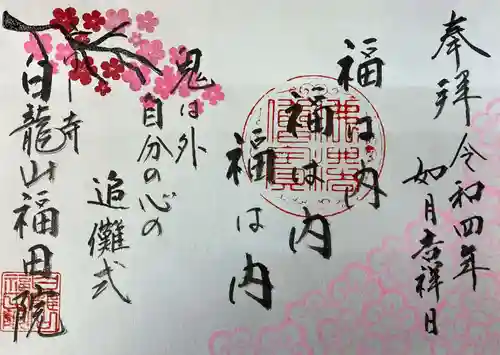 奉拝
令和四年
如月吉祥日
福は内
福は内
福は内
鬼は外
自分の心の
追儺式
白龍山福田院